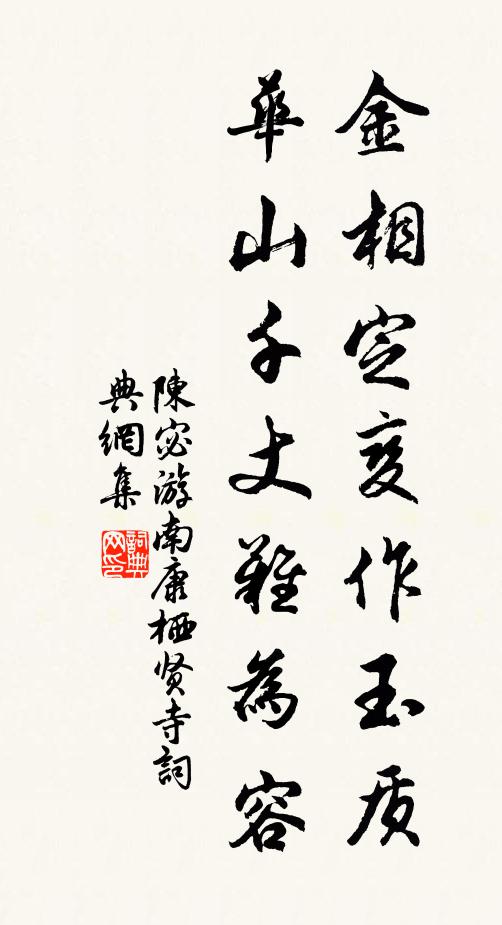 金相定变作玉质
華山千丈難為容
陳宓游南康栖贤寺詞
典網集
詞典网印